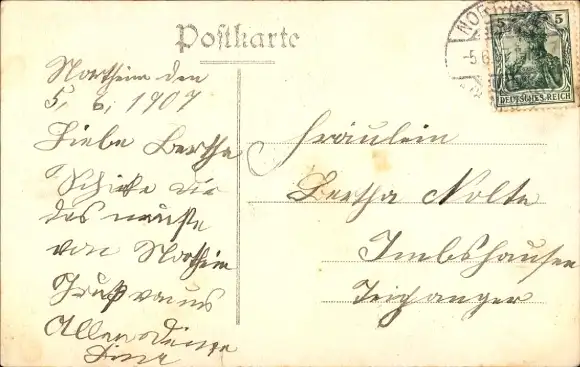 Postkarte
Northeim den
5. 6. 1907
Liebe Bertha
Schicke dir
das neuste
von Northeim
Gruß von uns
Allen deine
Fräulein
Bertha Nolte
Imbshausen
5 5
DEUTSCHES REICH
NO
-5.6